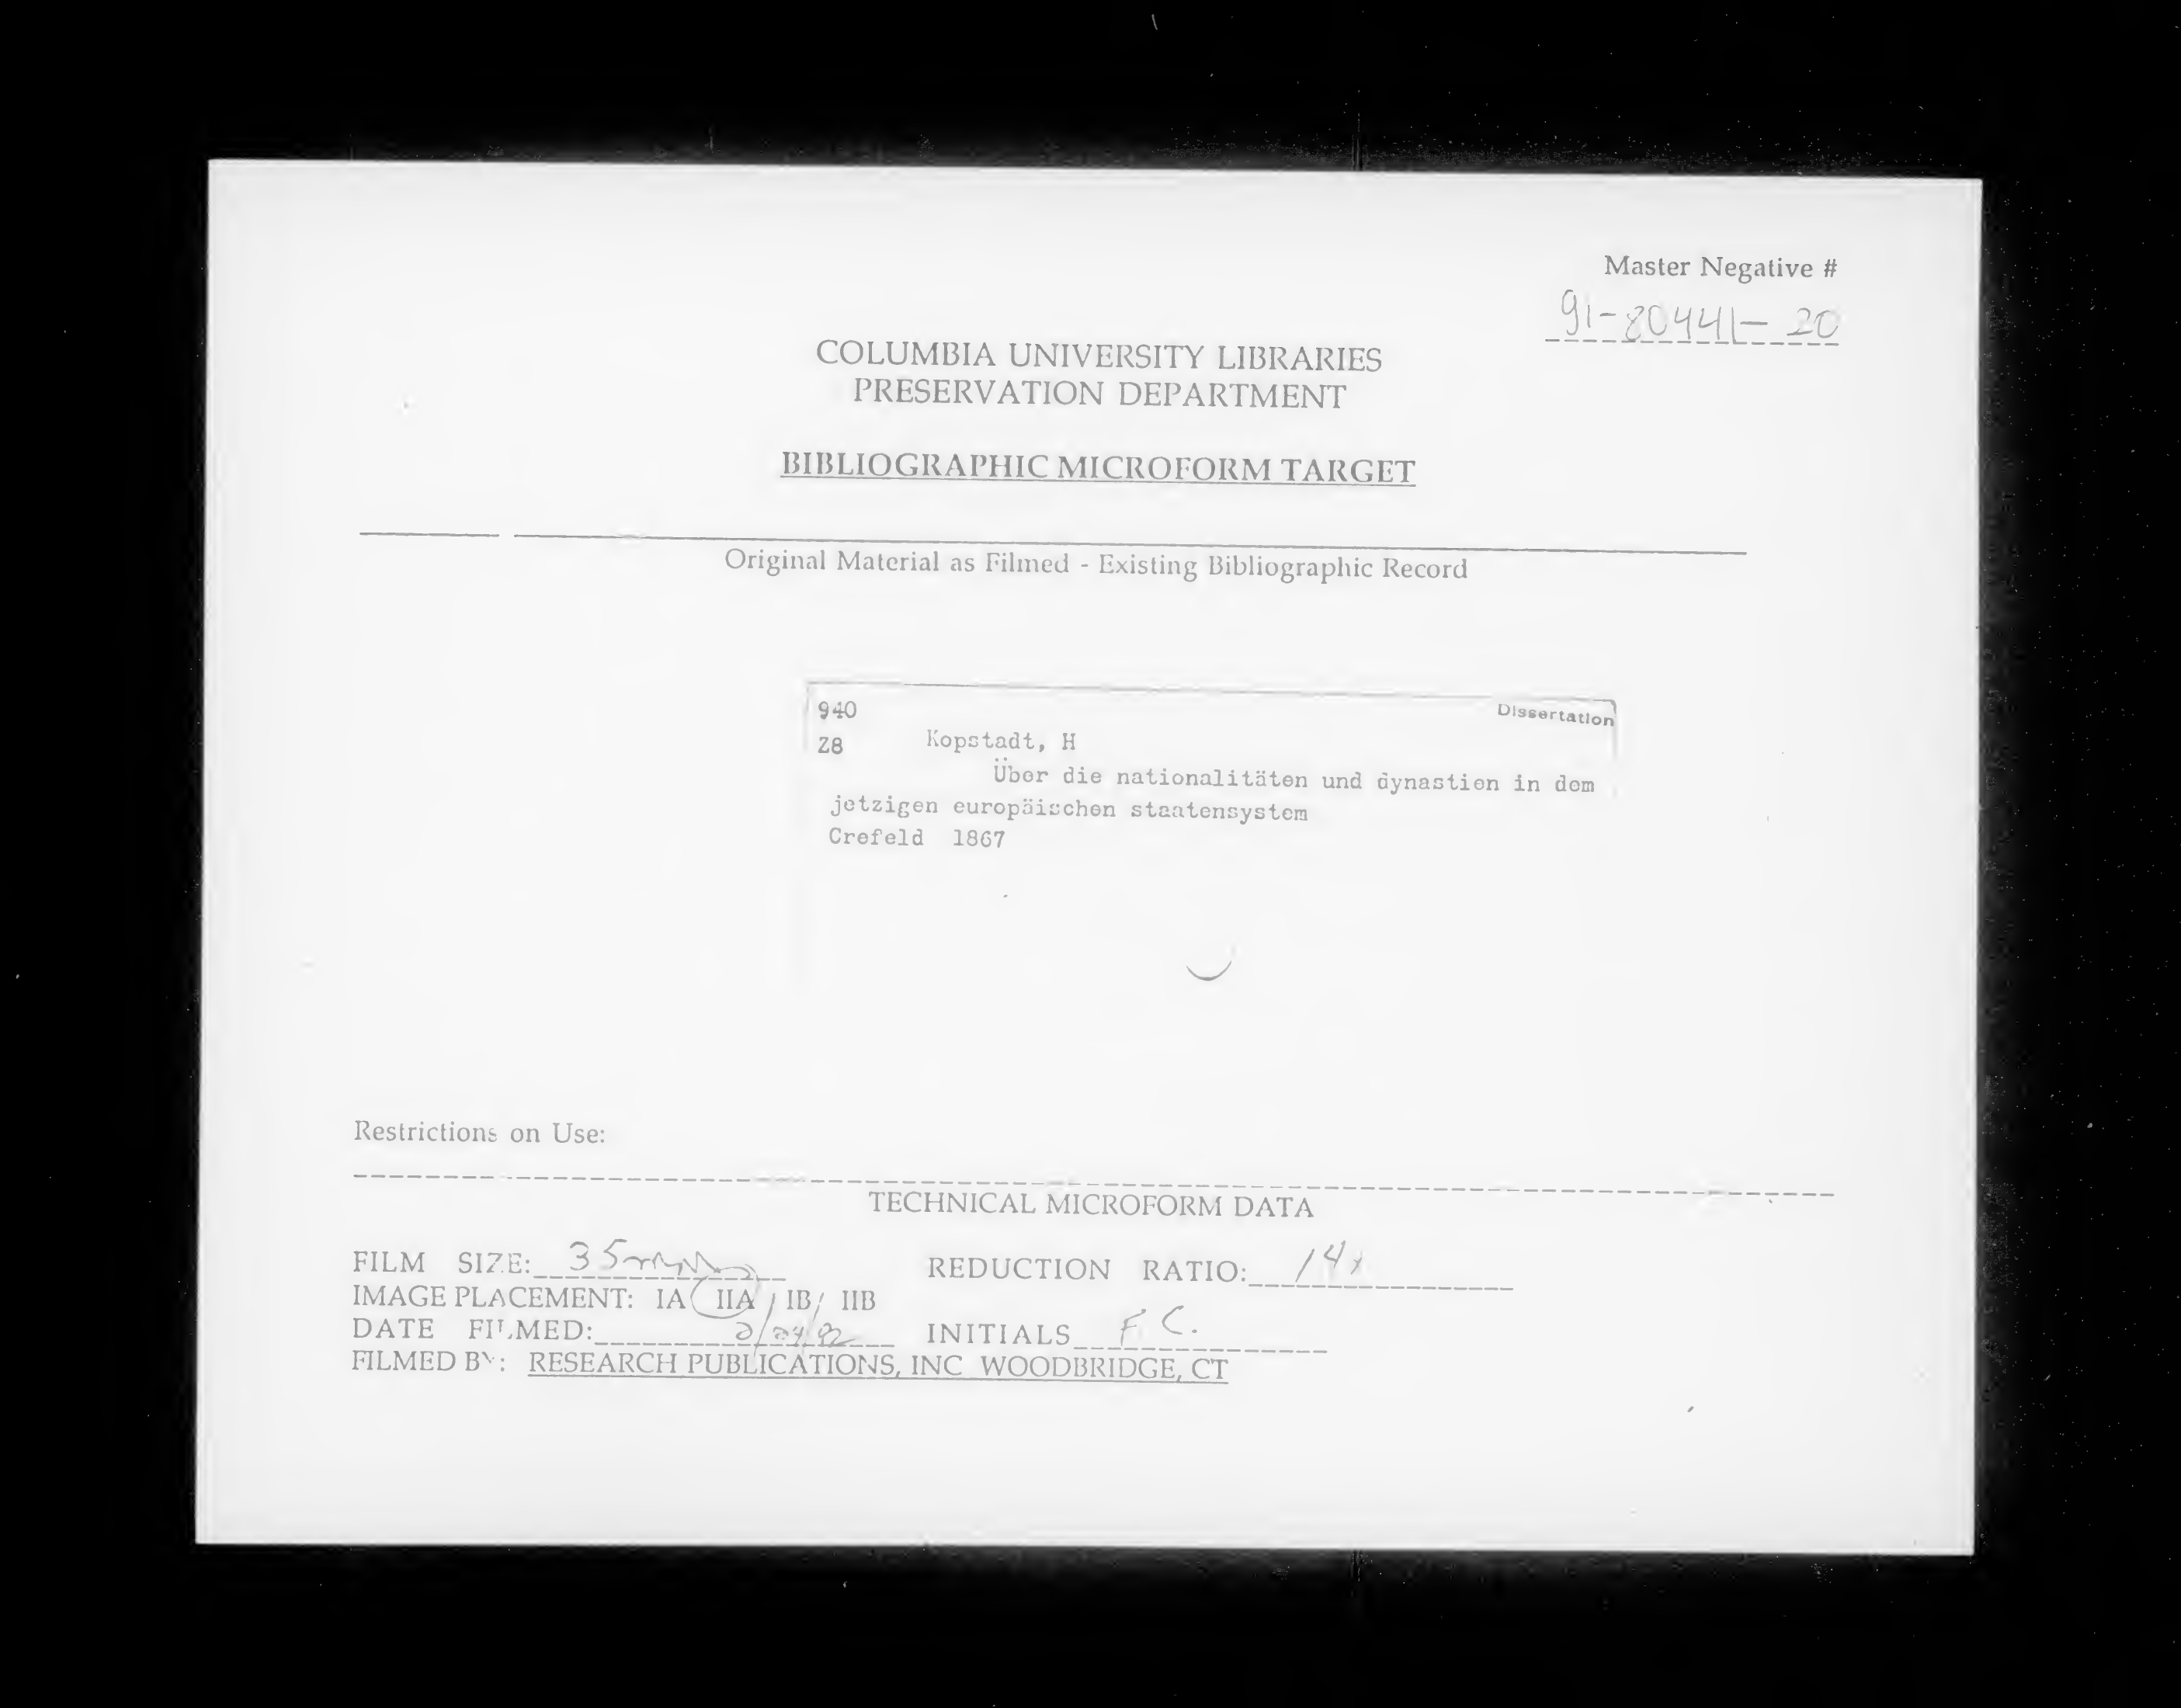 Master Negative #
91-80441-20
COLUMBIA UNIVERSITY LIBRARIES
PRESERVATION DEPARTMENT
BIBLIOGRAPHIC MICROFORM TARGET
Original Material as Filmed - Existing Bibliographic Record
940 Dissertation
Z8 Kopstadt, H
Über die nationalitäten und dynastien in dem
jetzigen europäischen staatensystem
Crefeld 1867
Restrictions on Use:
TECHNICAL MICROFORM DATA
FILM SIZE: 35mm REDUCTION RATIO: 14x
IMAGE PLACEMENT: IA IIA / IB/ IIB
DATE FILMED: 2/24/92 INITIALS F C.
FILMED BY: RESEARCH PUBLICATIONS, INC WOODBRIDGE, CT